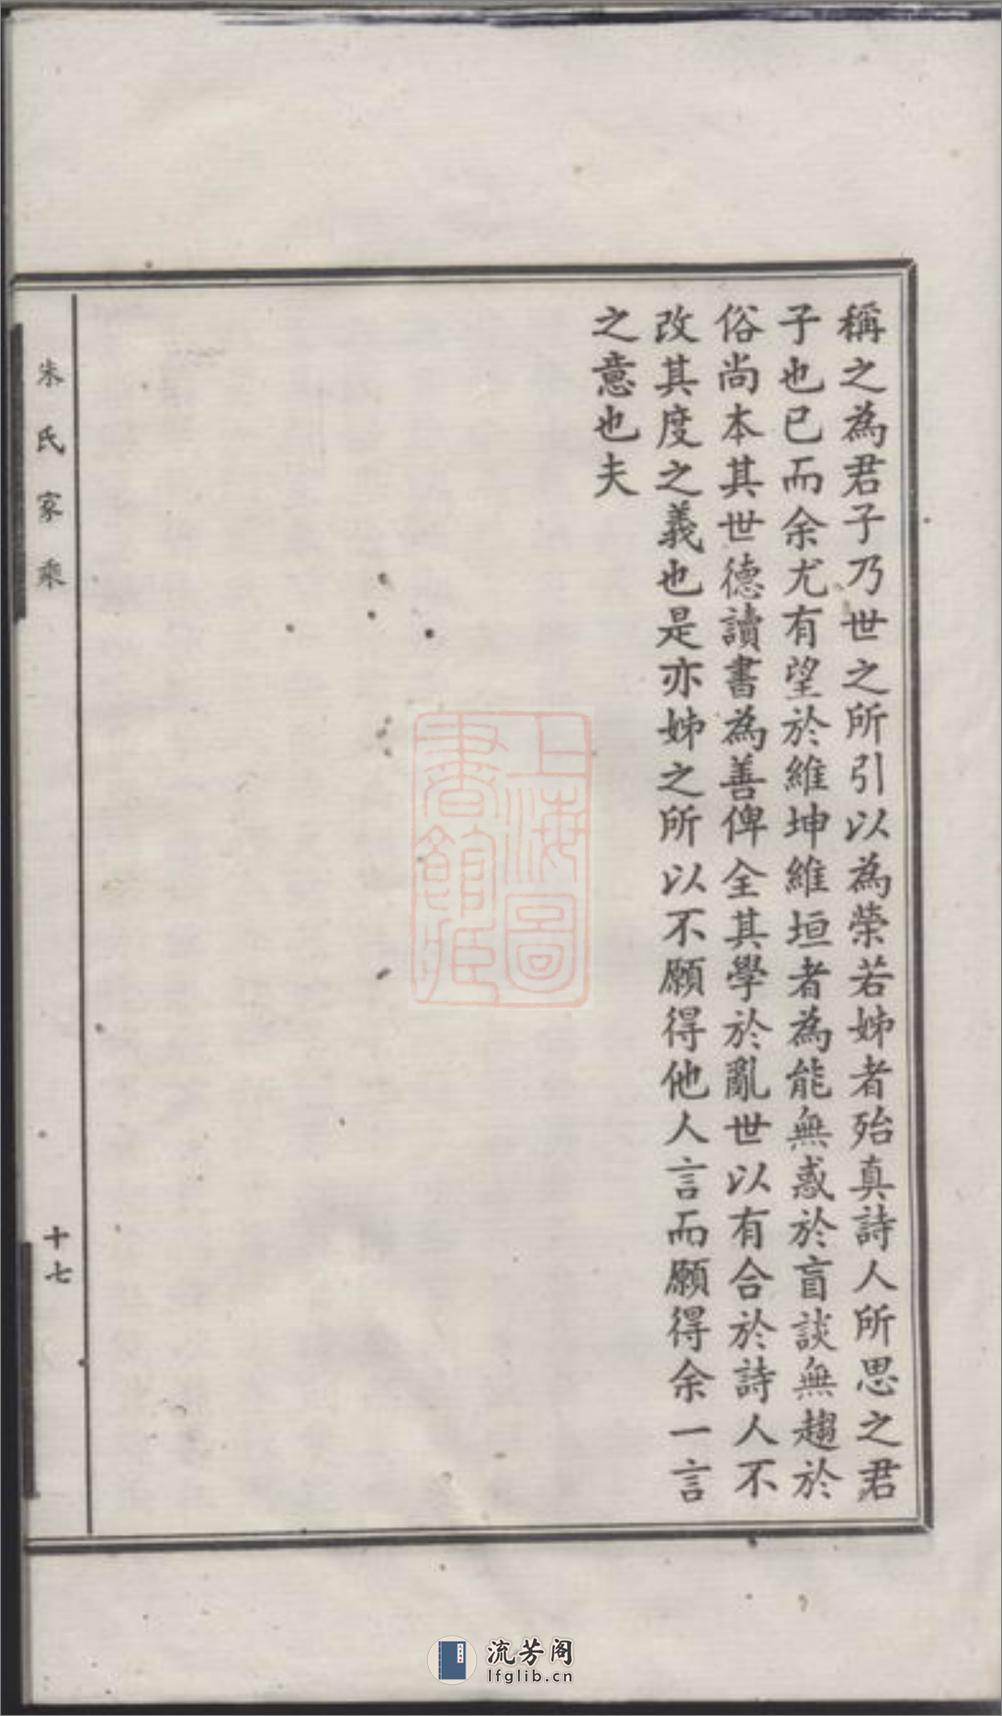 稱之為君子乃世之所引以為榮若姊者殆真詩人所思之君
子也已而余尤有望於維坤維垣者為能無惑於盲談無趨於
俗尚本其世德讀書為善俾全其學於亂世以有合於詩人不
改其度之義也是亦姊之所以不願得他人言而願得余一言
之意也夫
朱氏家乘
十七
上海圖
書館藏
流芳阁
lfglib.cn